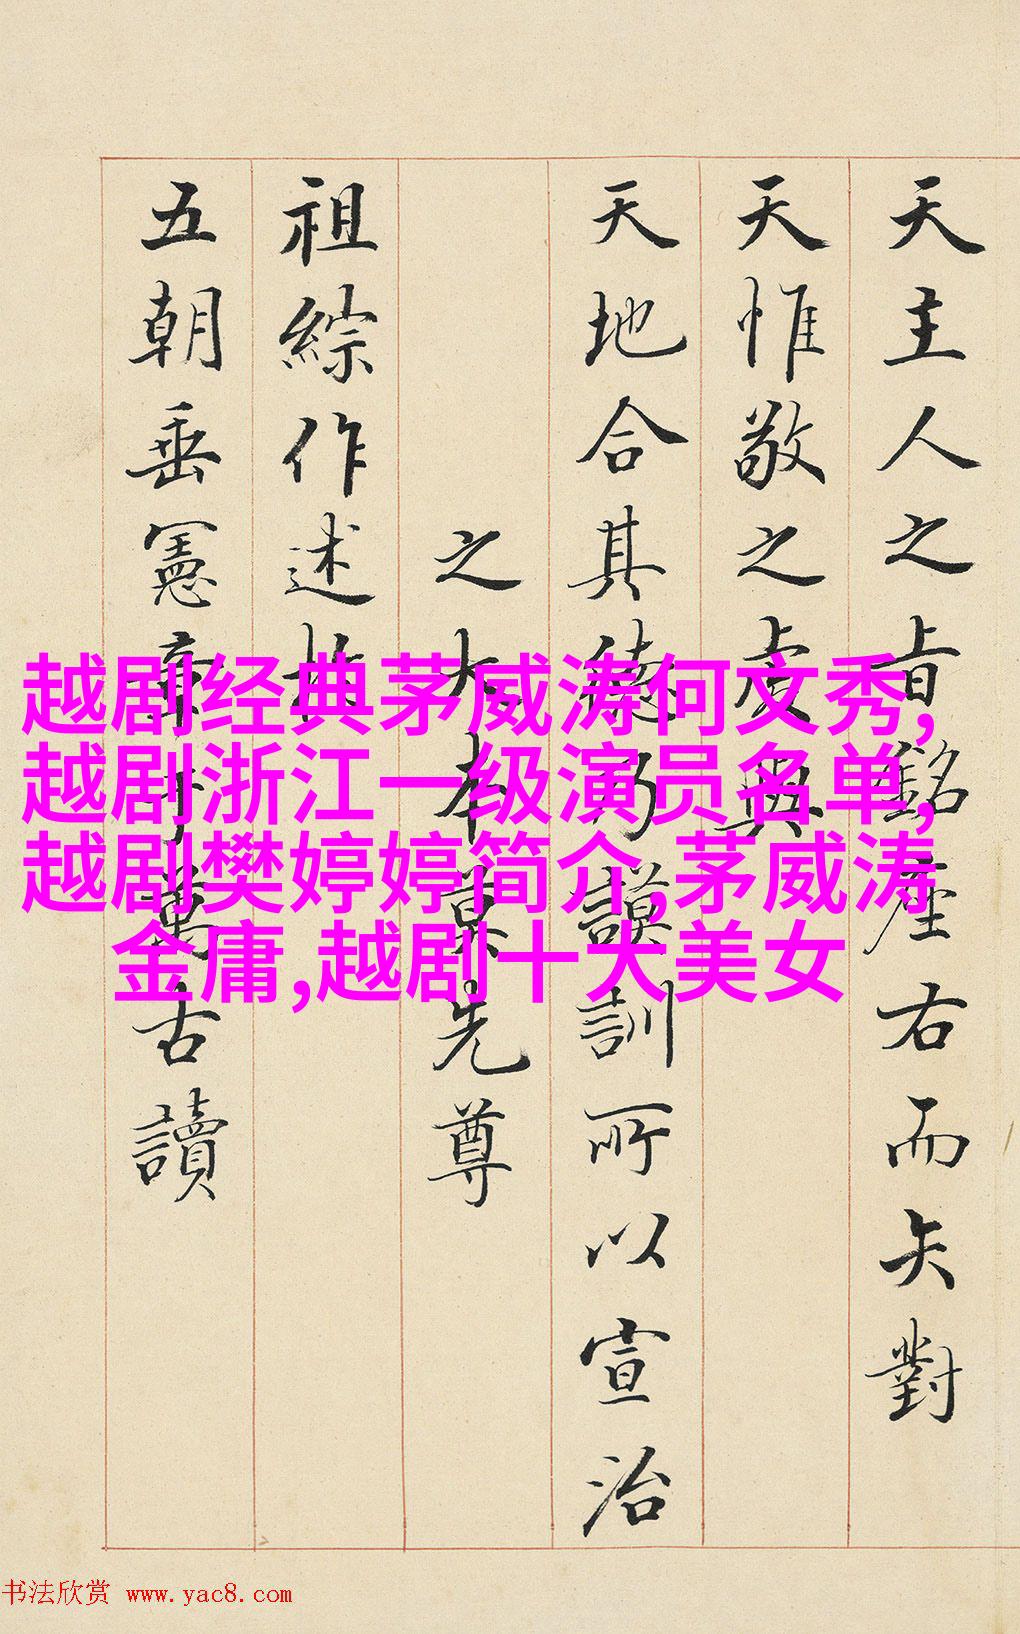 天主人之旨銘座右而矢對
天惟敬之虔與
天地合其德乃謨訓所以宣治
之大本莫先尊
祖綜作述
五朝垂憲章于萬古讀
越剧经典茅威涛何文秀,
越剧浙江一级演员名单,
越剧樊婷婷简介,茅威涛
金庸,越剧十大美女
书法欣赏 www.yac8.com